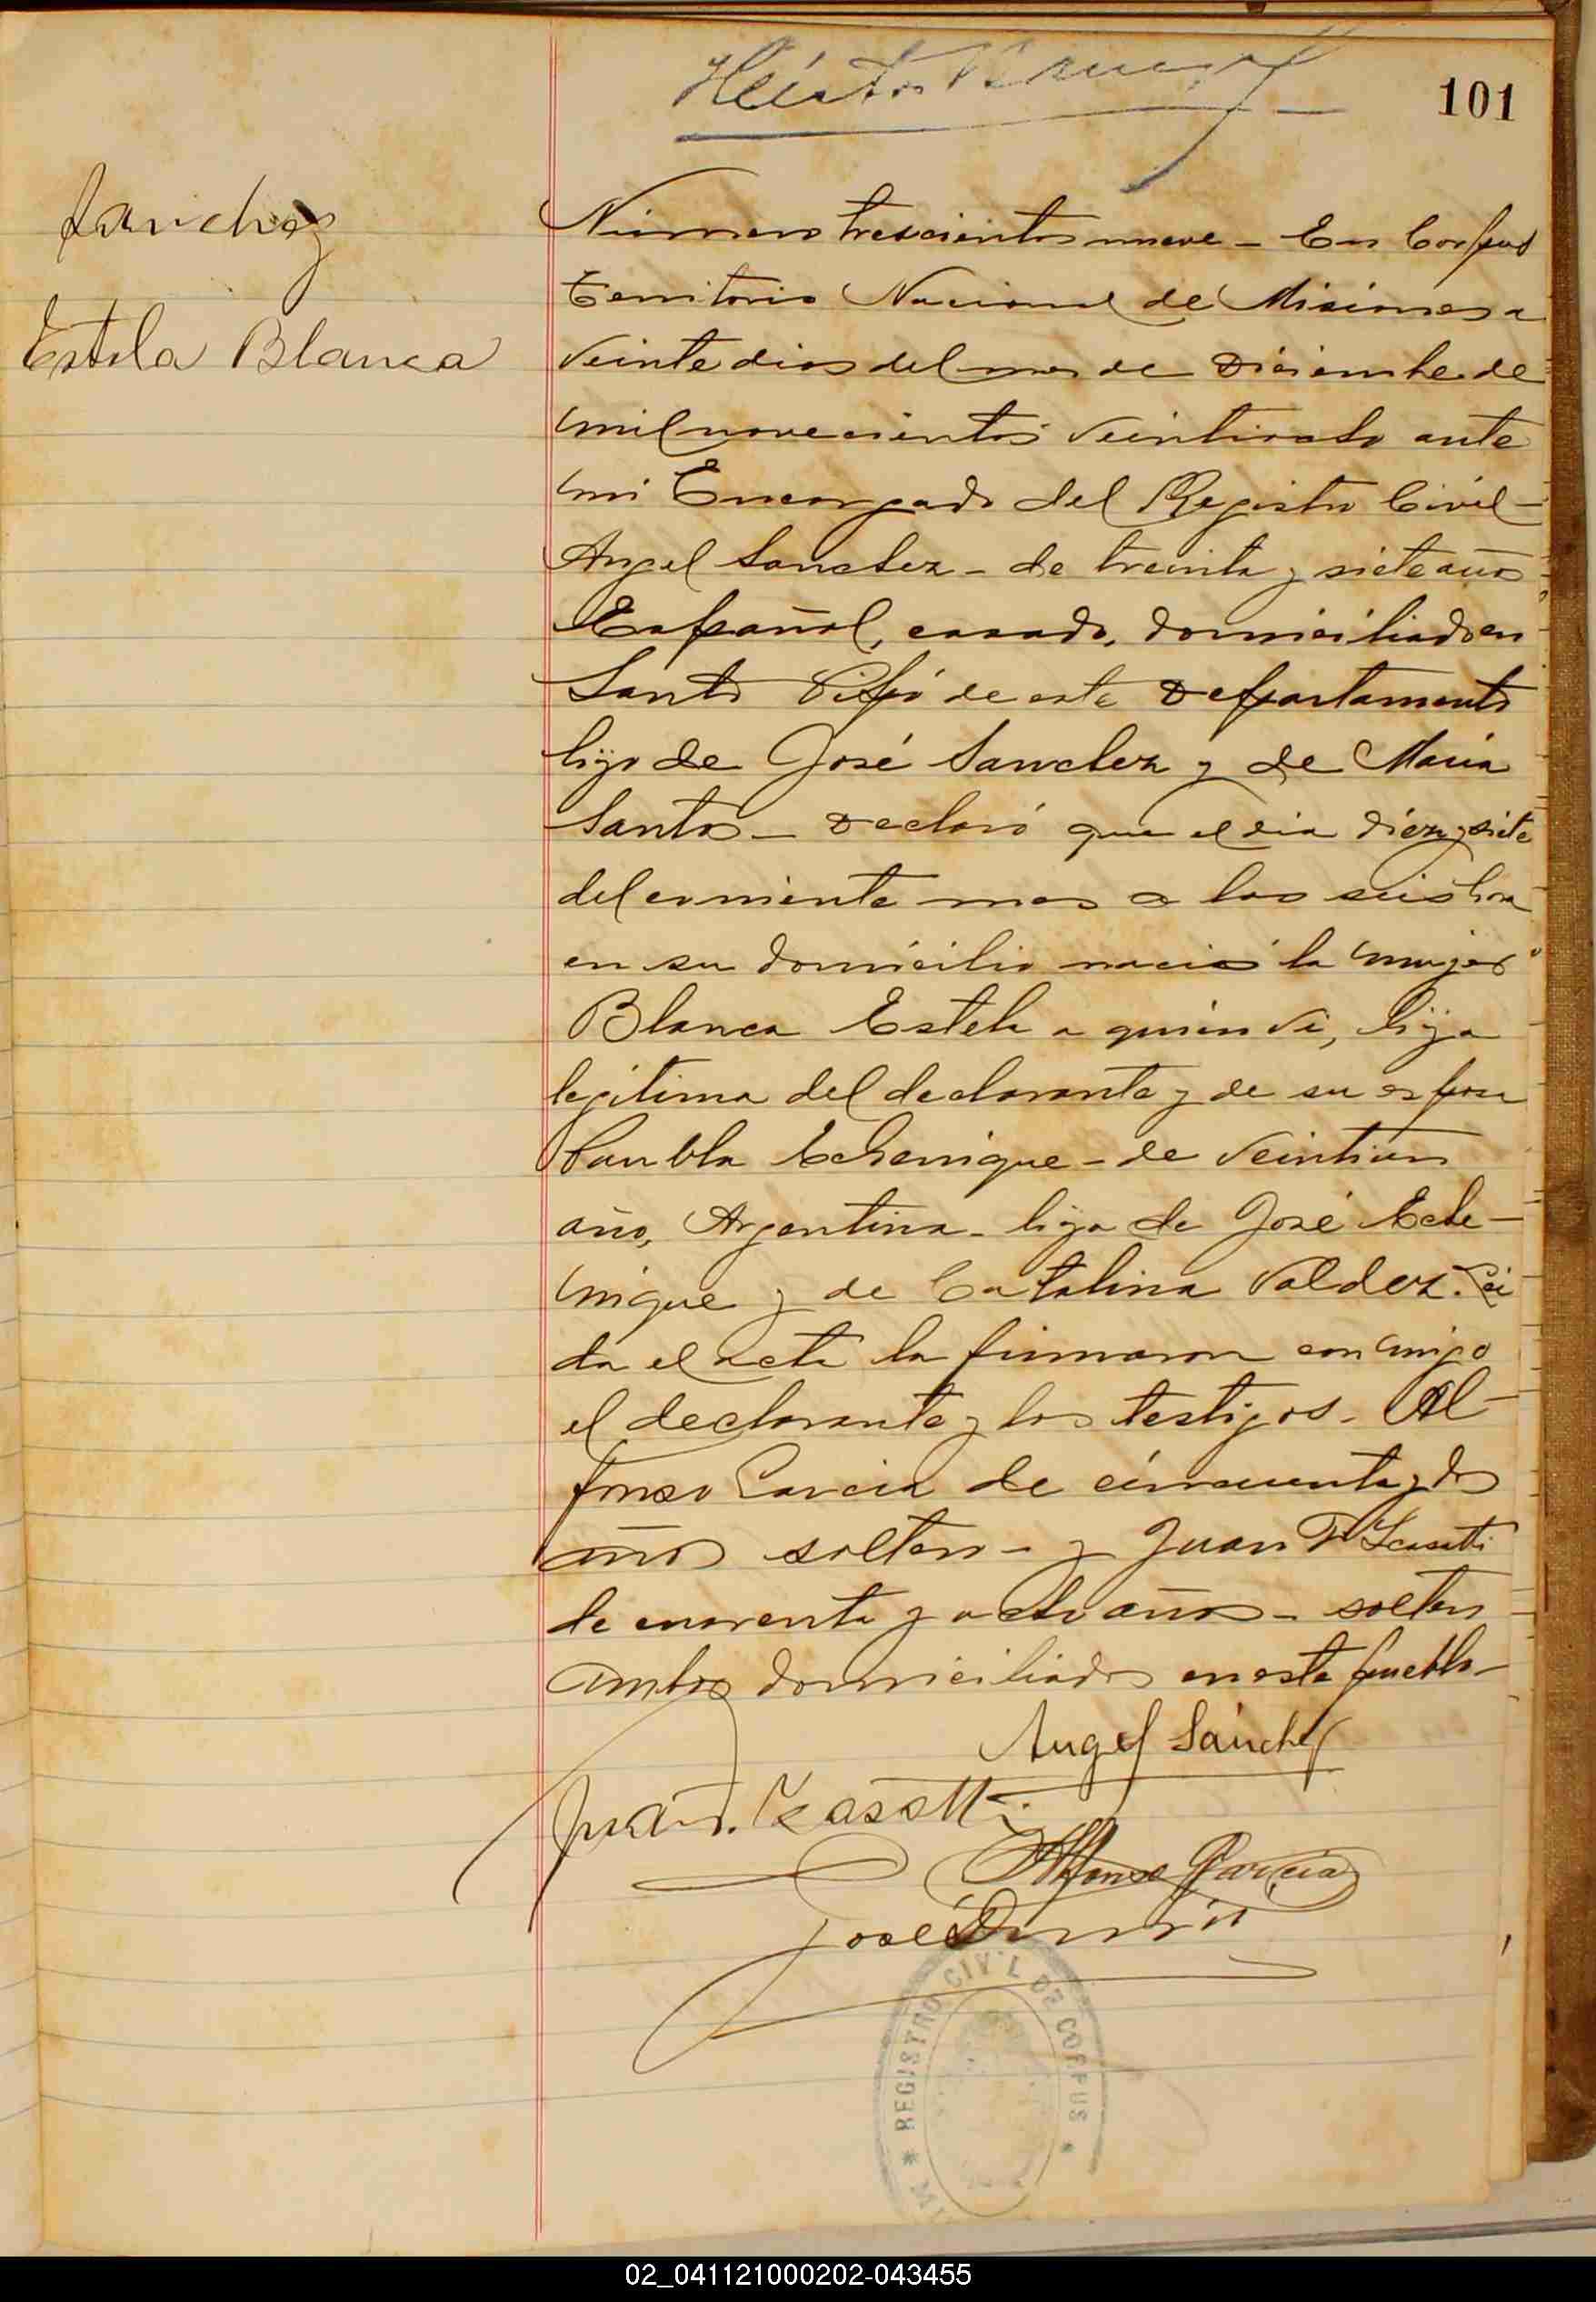 101
Sanchez
Estela Blanca
Número trescientos nueve - En Corpus
Territorio Nacional de Misiones a
veinte dias del mes de Diciembre de
mil novecientos veintiocho ante
mi Encargado del Registro Civil -
Angel Sanchez - de treinta y siete años
Español, casado, domiciliado en
Santo Pipó de este Departamento
hijo de José Sanchez y de Maria
Santos - Declaró que el dia diez y siete
del corriente mes a las seis hora
en su domicilio nació la mujer
Blanca Estela a quien vi, hija
legitima del declarante y de su esposa
Echenique - de veintiun
año, Argentina - hija de José Eche-
nique y de Catalina Valdez. Lei
da el acta la firmaron conmigo
el declarante y los testigos - Al-
fonso Garcia de cincuenta y dos
años soltero - y Juan
de cuarenta y ocho años - soltero
ambos domiciliados en este pueblo -
Angel Sánchez
Juan
Alfonso Garcia
José
REGISTRO CIVIL DE CORPUS
02_041121000202-043455